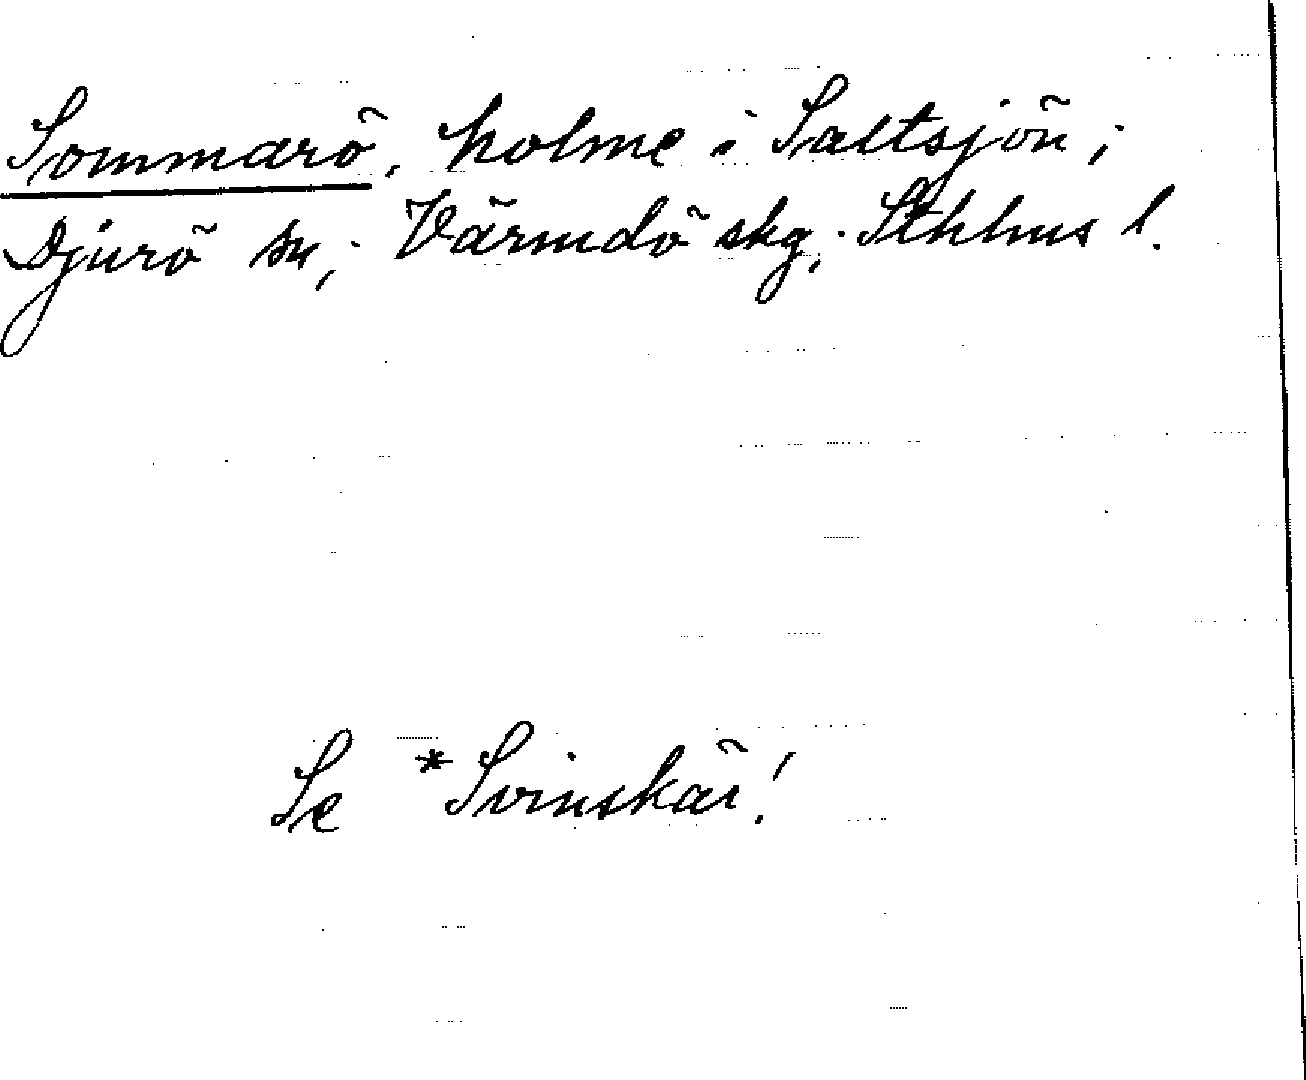 Sommarö, holme i Saltsjön;
Djurö sn, Värmdö skg, Sthlms l.
Se *Svinskär!